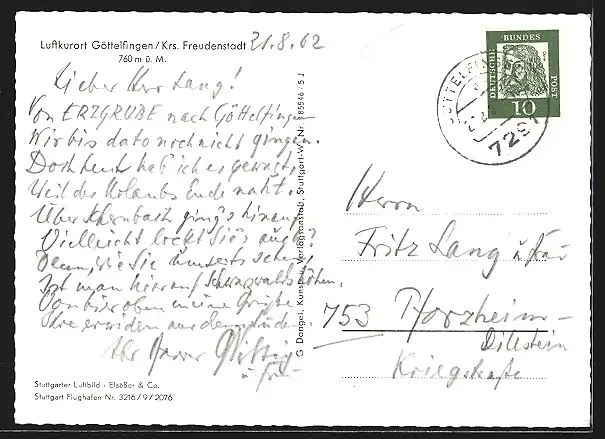 Luftkurort Göttelfingen / Krs. Freudenstadt
760 m ü. M.
21.8.62
Lieber Herr Lang!
Von ERZGRUBE nach Göttelfingen
Wir bis dato noch nicht gingen.
Doch heut hab' ich es gewagt,
Weil des Urlaubs Ende naht.
Über ging's hinauf
Vielleicht lockt Sie's auch?
Denn, wie Sie umseits sehen,
Ist man hier auf Schwarzwaldhöhen.
Von hier oben meine Grüße
Sie
Ihr
u. Frau
Stuttgarter Luftbild · Elsäßer & Co.
Stuttgart Flughafen Nr. 3216/9/2076
G. Dangel, Kunst- u. Verlagsanstalt, Stuttgart-W, Nr. 185546/5 J
DEUTSCHE
BUNDES
POST
10
GÖTTELFINGEN
7291
Herrn
Fritz Lang u Frau
753 Pforzheim-
Dillstein
Kriegstraße